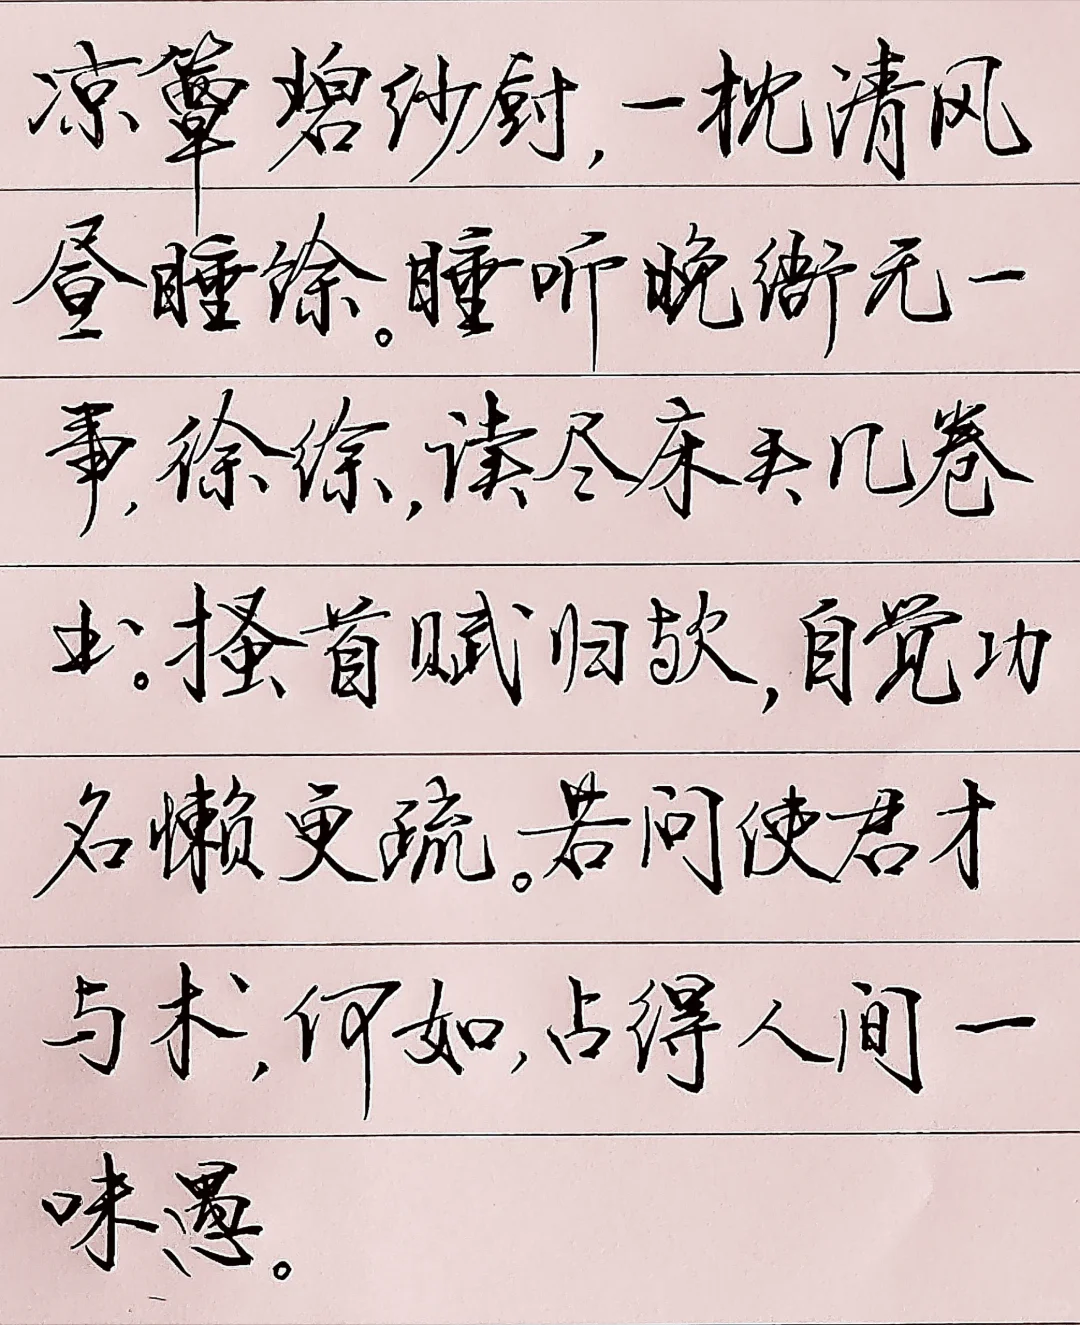 凉簟碧纱厨,一枕清风
昼睡馀。睡听晚衙无一
事,徐徐,读尽床头几卷
书。搔首赋归欤,自觉功
名懒更疏。若问使君才
与术,何如,占得人间一
味愚。